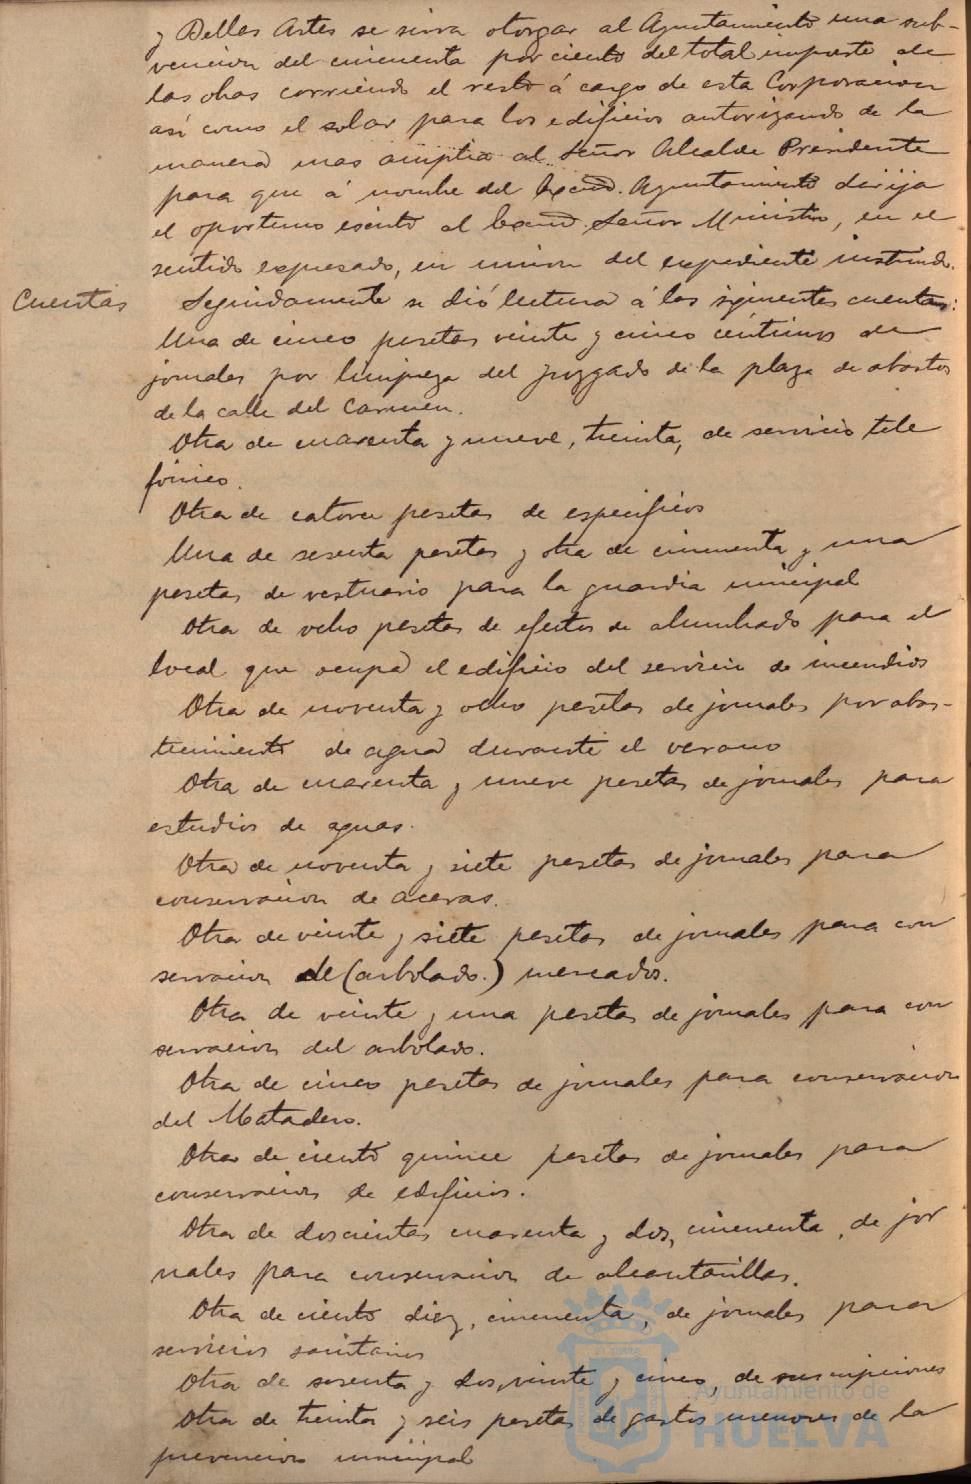 y Bellas Artes se sirva otorgar al Ayuntamiento una sub-
vencion del cincuenta por ciento del total importe de
las obras corriendo el resto á cargo de esta Corporacion
asi como el solar para los edificios autorizando de la
manera mas amplia al Señor Alcalde Presidente
para que á nombre del Excmo. Ayuntamiento dirija
el oportuno escrito al Excmo. Señor Ministro, en el
sentido expresado, en union del expediente instruido.
Cuentas
Seguidamente se dió lectura á las siguientes cuentas:
Una de cinco pesetas veinte y cinco céntimos de
jornales por limpieza del juzgado de la plaza de abastos
de la calle del Carmen.
Otra de cuarenta y nueve, treinta, de servicio tele
fónico.
Otra de catorce pesetas de especificos
Una de sesenta pesetas y otra de cincuenta y una
pesetas de vestuario para la guardia municipal
Otra de ocho pesetas de efectos de alumbrado para el
local que ocupa el edificio del servicio de incendios
Otra de noventa y ocho pesetas de jornales por abas-
tecimiento de agua durante el verano
Otra de cuarenta y nueve pesetas de jornales para
estudios de aguas.
Otra de noventa y siete pesetas de jornales para
conservacion de aceras.
Otra de veinte y siete pesetas de jornales para con
servacion de (arbolado.) mercados.
Otra de veinte y una pesetas de jornales para con
servacion del arbolado.
Otra de cinco pesetas de jornales para conservacion
del Matadero.
Otra de ciento quince pesetas de jornales para
conservacion de edificios.
Otra de doscientas cuarenta y dos, cincuenta, de jor
nales para conservacion de alcantarillas.
Otra de ciento diez, cincuenta, de jornales para
servicios sanitarios
Otra de sesenta y dos, veinte y cinco, de suscripciones
Otra de treinta y seis pesetas de gastos menores de la
prevencion municipal
Ayuntamiento de
HUELVA